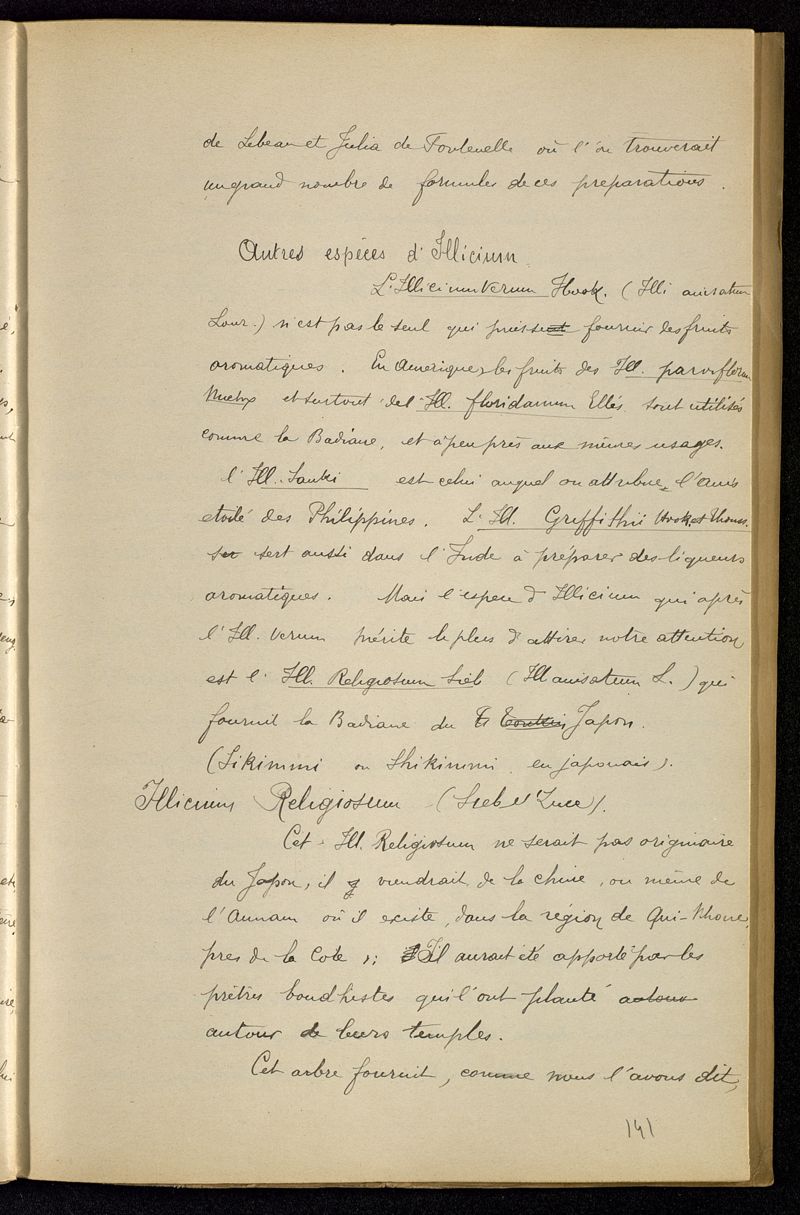 de Lebeau et Julia de Fontenelle où l'on trouverait
un grand nombre de formules de ces preparations.
Autres espèces d'Illicium
L'Illicium Verum Hook. (Illi anisatum
Lour.) n'est pas le seul qui puisse fournir des fruits
aromatiques. En Amerique, les fruits des Ill. parviflorum
et surtout del'Ill. floridanum Ellés sont utilisés
comme la Badiane, et à peu près aux mêmes usages.
l'Ill. Sanki est celui auquel on attribue l'anis
etoilé des Philippines. L'Ill. Griffithii Hook et Thoms.
sert aussi dans l'Inde à préparer des liqueurs
aromatiques. Mais l'espece d'Illicium qui après
l'Ill. Verum mérite le plus d'attirer notre attention
est l'Ill. Religiosum Sieb (Ill anisatum L.) qui
fournit la Badiane du Japon.
(Sikimmi ou Shikimmi en japonais).
Illicium Religiosum (Sieb et Zucc).
Cet Ill. Religiosum ne serait pas originaire
du Japon, il y viendrait de la chine, ou même de
l'Annam où il existe, dans la région de Qui-Nhone,
pres de la Cote ; Il aurait été apporté par les
prêtres boudhistes qui l'ont planté
autour de leurs temples.
Cet arbre fournit, comme nous l'avons dit,
141